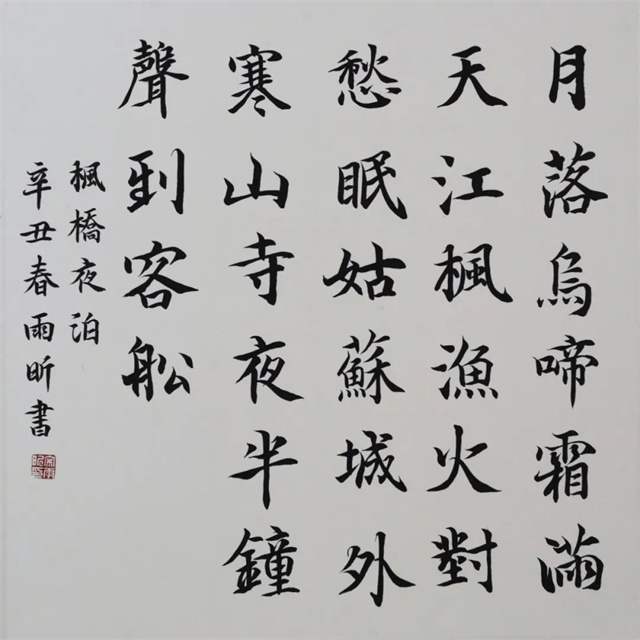 月落烏啼霜滿
天江楓漁火對
愁眠姑蘇城外
寒山寺夜半鐘
聲到客船
楓橋夜泊
辛丑春雨昕書